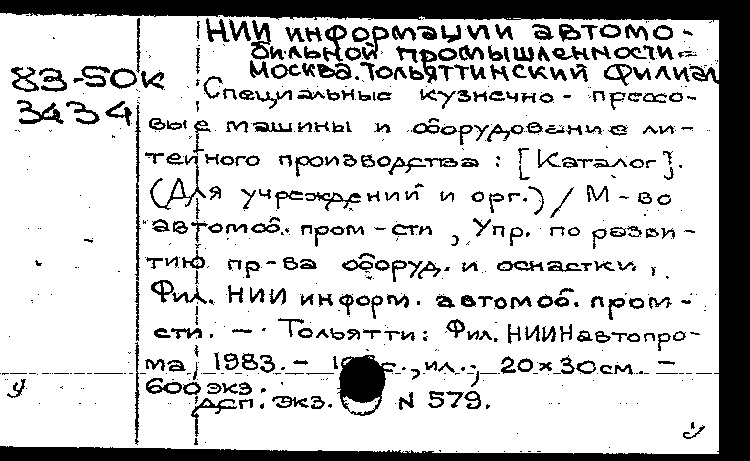 НИИ информации автомо-
бильной промышленности.
Москва. Тольяттинский филиал
83-50к
3434
Специальные кузнечно-прессо-
вые машины и оборудование ли-
тейного производства: [Каталог].
(Для учреждений и орг.) / М-во
автомоб. пром-сти, Упр. по разви-
тию пр-ва оборуд. и оснастки,
Фил. НИИ информ. автомоб. пром-
сти. — Тольятти: Фил. НИИНавтопро-
ма, 1983. – с., ил.; 20×30см. —
600 экз.
у
ДСП. Экз. N 579.